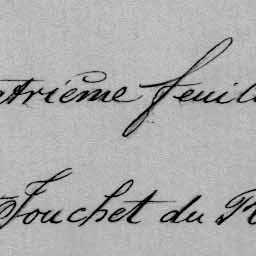 atrième feuil
Fouchet du R